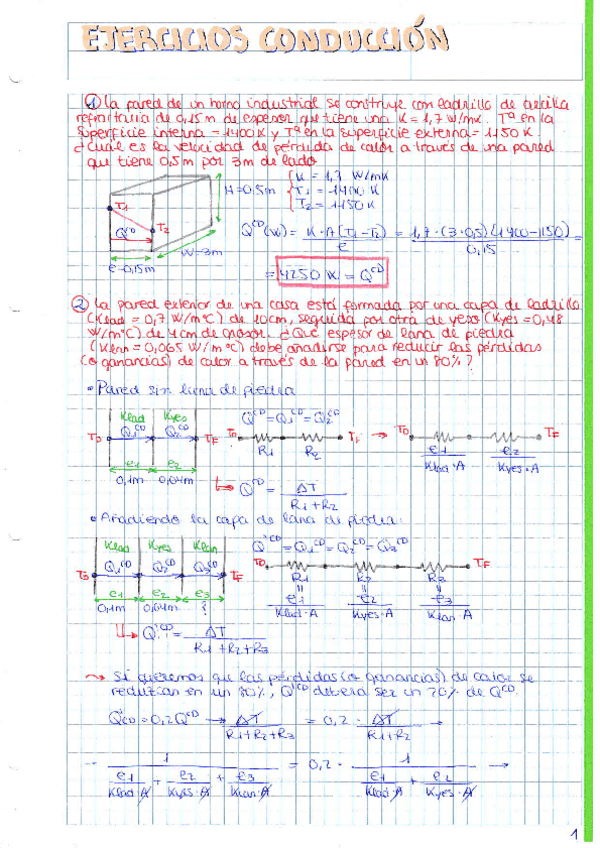 EJERCICIOS CONDUCCIÓN
① La pared de un horno industrial se construye con ladrillo de arcilla
refractaria de 0,15 m de espesor que tiene una K = 1,7 W/mK. Tª en la
superficie interna = 1400 K y Tª en la superficie externa = 1150 K.
¿Cuál es la velocidad de pérdida de calor a través de una pared
que tiene 0,5m por 3m de lado
K = 1,7 W/mK
T1 = 1400 K
T2 = 1150 K
H=0,5m
T1
T2
Q^CD
W=3m
e=0,15m
Q^CD (W) = K·A (T1-T2) / e = 1,7·(3·0,5)(1400-1150) / 0,15 =
= 4250 W = Q^CD
② La pared exterior de una casa está formada por una capa de ladrillo
(Klad = 0,7 W/mºC) de 10cm, seguida por otra de yeso (Kyes = 0,48
W/mºC) de 4cm de grosor. ¿Que espesor de lana de piedra
(Klan = 0,065 W/mºC) debe añadirse para reducir las pérdidas
(o ganancias) de calor a través de la pared en un 80%?
• Pared sin lana de piedra
Klad Kyes
Q1^CD Q2^CD
TF
e1 e2
0,1m 0,04m
Q^CD = Q1^CD = Q2^CD
R1 R2
e1 / Klad·A e2 / Kyes·A
TF
Q^CD = ΔT / R1+R2
• Añadiendo la capa de lana de piedra:
Klad Kyes Klan
Q1^CD Q2^CD Q3^CD
TF
e1 e2 e3
0,1m 0,04m ?
Q'^CD = Q1^CD = Q2^CD = Q3^CD
R1 R2 R3
TF
e1 / Klad·A e2 / Kyes·A e3 / Klan·A
Q'^CD = ΔT / R1+R2+R3
Si queremos que las pérdidas (o ganancias) de calor se
reduzcan en un 80%, Q'^CD deberá ser un 20% de Q^CD
Q'CD = 0,2 Q^CD → ΔT / R1+R2+R3 = 0,2 · ΔT / R1+R2 →
→ 1 / (e1 / Klad·A + e2 / Kyes·A + e3 / Klan·A) = 0,2 · 1 / (e1 / Klad·A + e2 / Kyes·A) →
1